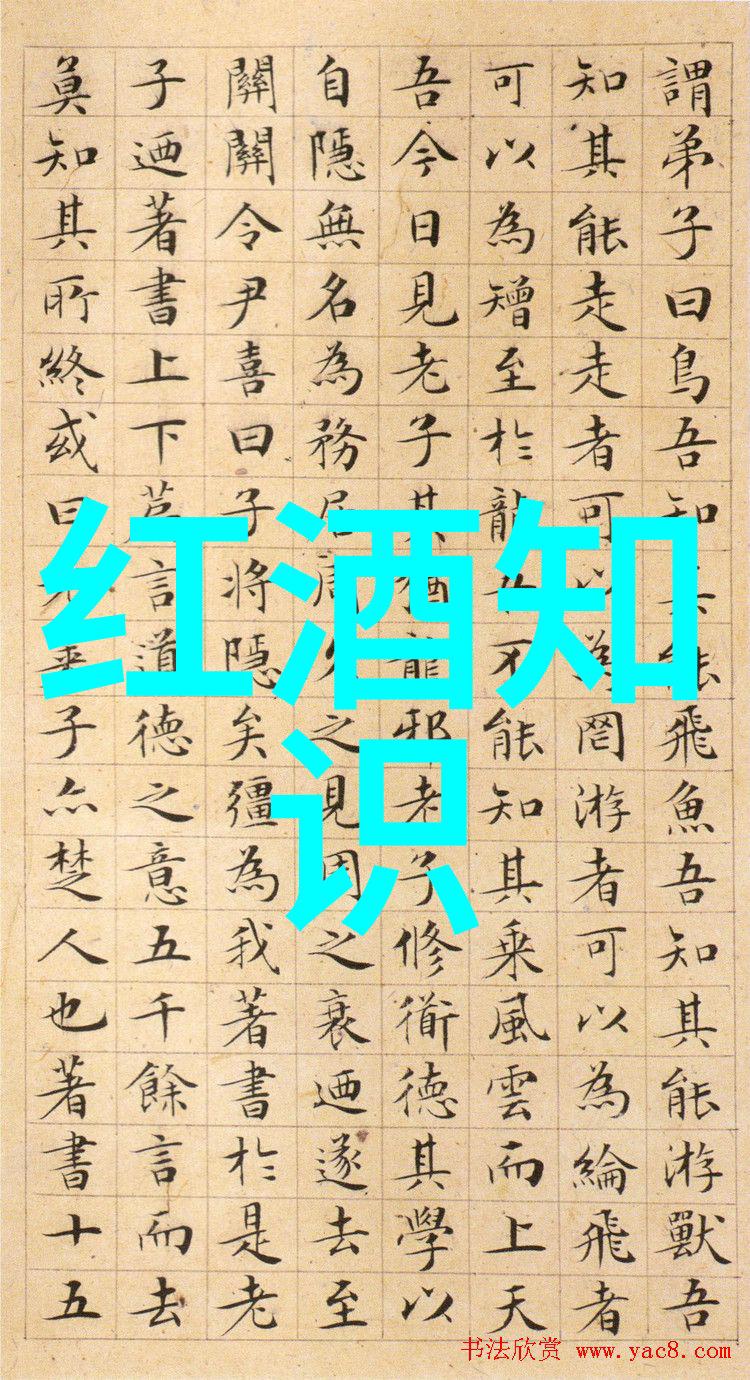 红酒知
识
謂弟子曰鳥吾知其能飛魚吾知其能游獸吾
知其能走走者可以為罔游者可以為綸飛者
可以為矰至於龍吾不能知其乘風雲而上天
吾今日見老子其猶龍邪老子修衜德其學以
自隱無名為務居周久之見周之衰迺遂去至
關關令尹喜曰子將隱矣彊為我著書於是老
子迺著書上下言道德之意五千餘言而去
莫知其所終或曰老萊子亦楚人也著書十五
书法欣赏 www.yac8.com